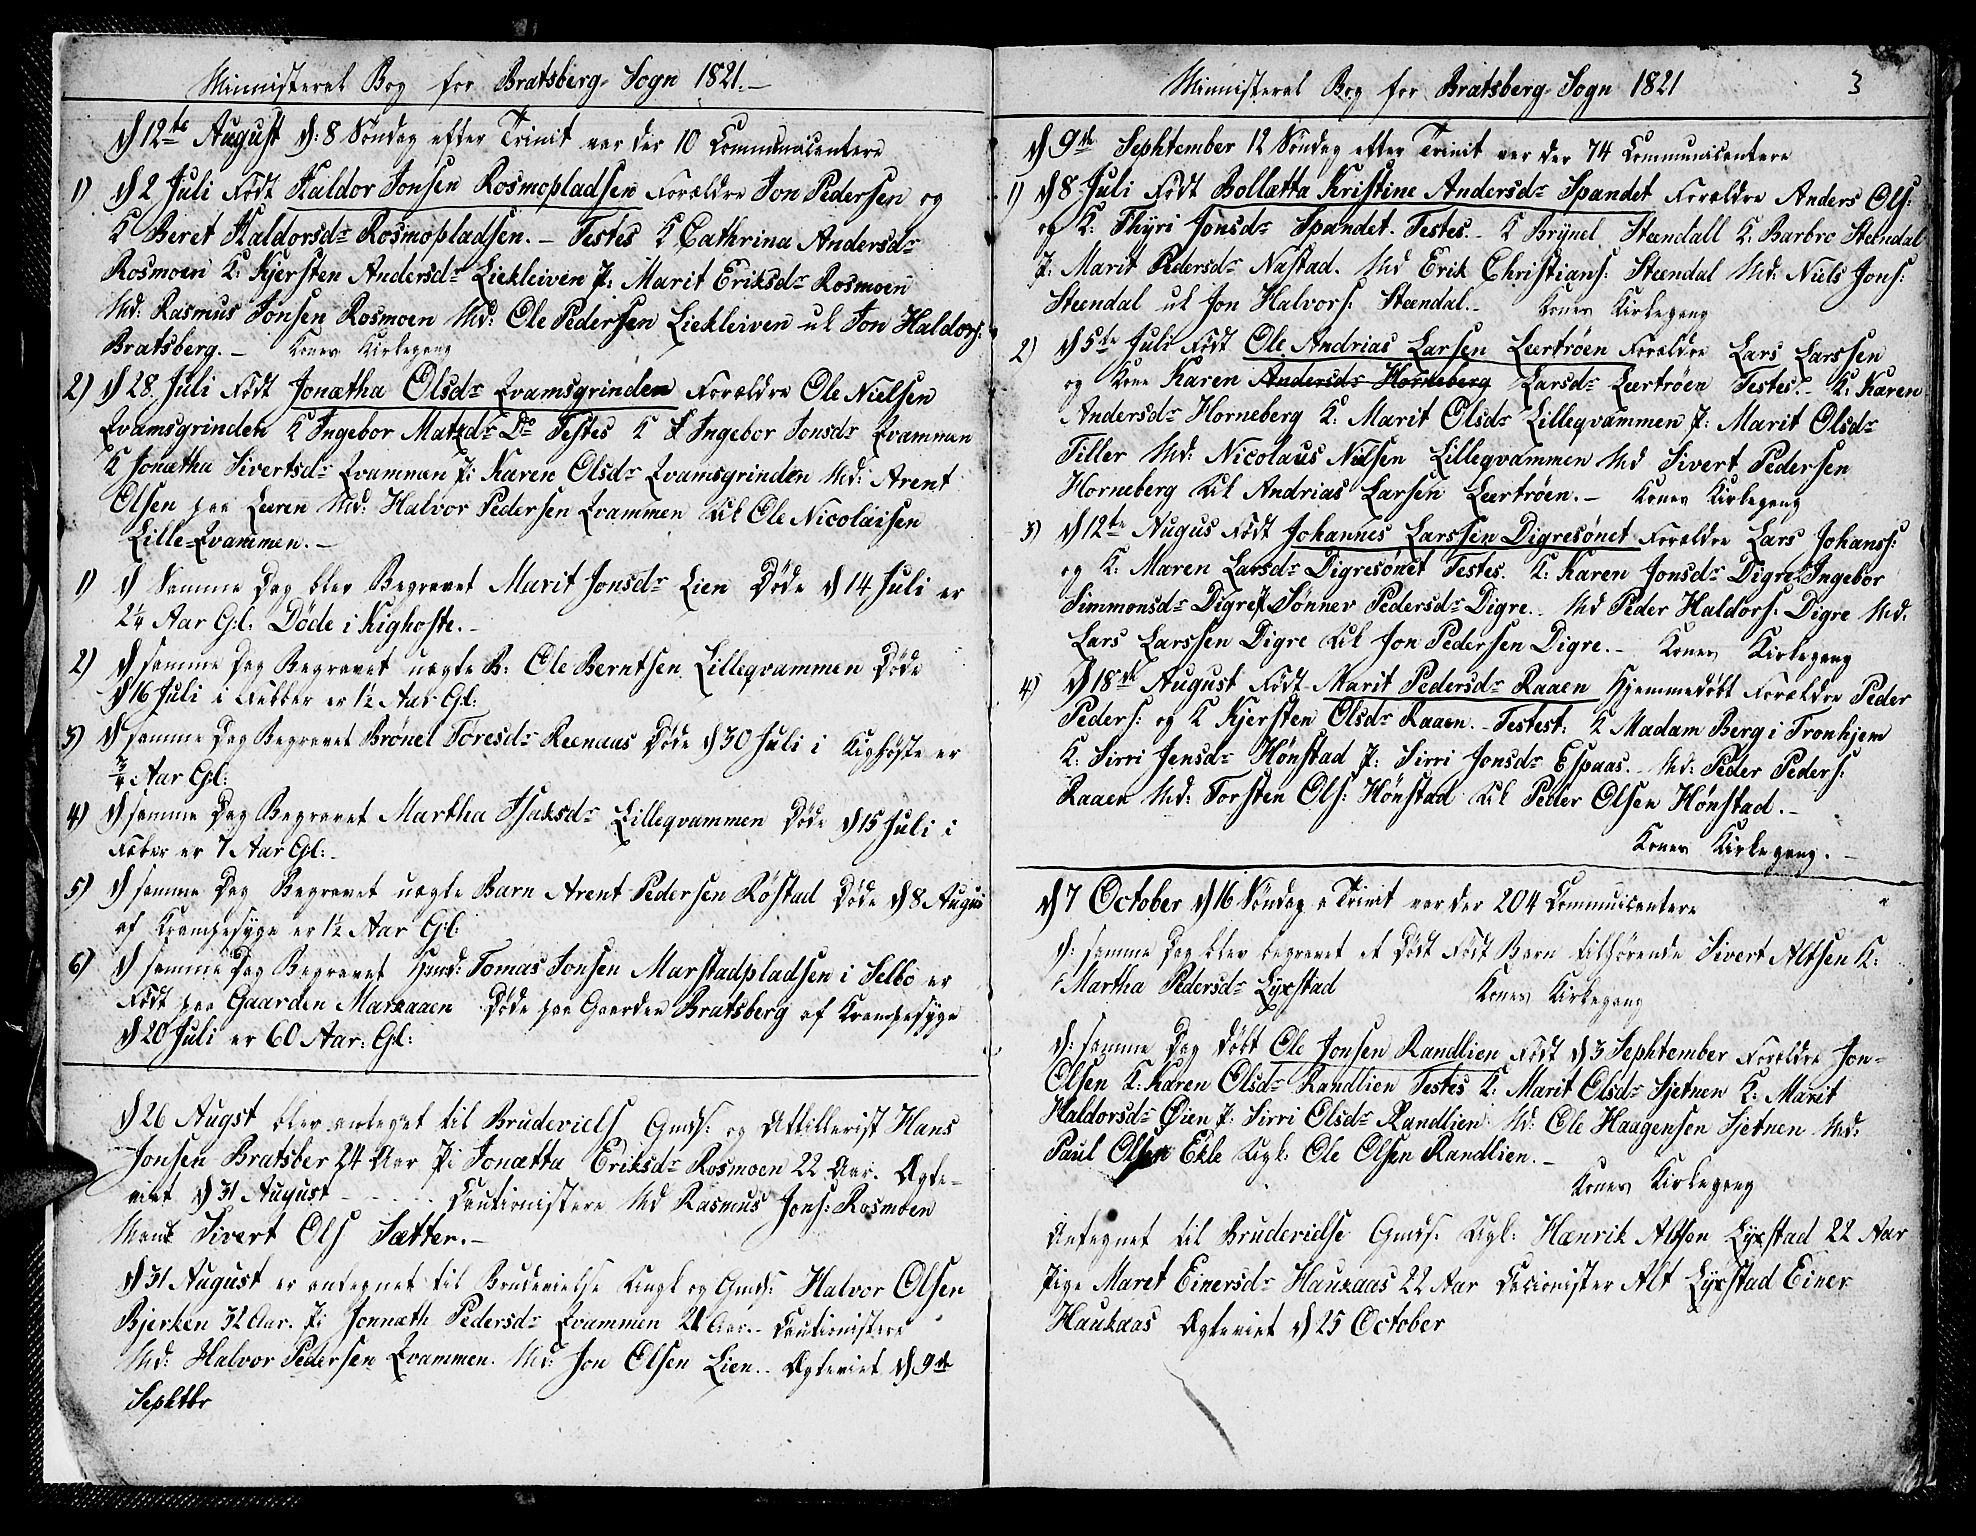 Ministeral Bog for Bratsberg Sogn 1821.-
D 12te August D: 8 Søndag efter Trinit var der 10 Communicentere
1) D 2 Juli Født Haldor Jonsen Rosmopladsen Forældre Jon Pedersen og
K Beret Haldorsdr Rosmopladsen. - Testes K Cathrina Andersdr
Rosmoen K: Kjersten Andersdr Liekleiven P: Marit Eriksdr Rosmoen
Md: Rasmus Jonsen Rosmoen Md: Ole Pedersen Liekleiven uk Jon Haldors:
Bratsberg. - Konens Kirkegang
2) D 28. Juli Født Jonætha Olsdr Qvamsgrinden Forældre Ole Nielsen
Qvamsgrinden K Ingebor Matzdr Do Testes K Ingebor Jonsdr Qvammen
K Jonætha Sivertsdr Qvammen P: Karen Olsdr Qvamsgrinden Md: Arent
Olsen paa Leeren Md: Halvor Pedersen Qvammen Uk Ole Nicolaisen
Lille-Qvammen. -
1) D Samme Dag blev Begravet Marit Jonsdr Lien Døde D 14 Juli er
2¼ Aar Gl. Døde i Kighoste. -
2) D samme Dag Begravet uægte B: Ole Berntsen Lilleqvammen Døde
D 16 Juli i Febber er 1½ Aar Gl:
3) D samme Dag Begravet Brönel Toresdr Reenaas Døde D 30 Juli i Kighoste er
¾ Aar Gl:
4) D samme Dag Begravet Martha Isaksdr Lilleqvammen Døde D 15 Juli i
Feber er 7 Aar Gl: -
5) D samme Dag Begravet uægte Barn Arent Pedersen Röstad Døde D 8 Augus
af Krampesyge er 1½ Aar Gl:
6) D samme Dag Begravet Tomas Jonsen Marstadpladsen i Selbo er
Født paa Gaarden Marxaaen Døde paa Gaarden Bratsberg af Krampesyge
D 20 Juli er 60 Aar: Gl:
D 26 Augst blev anteget til Brudeviels Gmds: og Attillerist Hans
Jonsen Bratsber 24 Aar Pi Jonætta Eriksdr Rosmoen 22 Aar. Ægte-
viet D 31 August - - - - Cautionistere Md Rasmus Jons: Rosmoen
Sivert Ols Sætter. -
D 31 August er antegnet til Brudevielse Ungk og Gmds: Halvor Olsen
Bjerken 32 Aar. Pi Jonnæth Pedersdr Qvammen 21 Aar. - Cautionistere
Md: Halvor Pedersen Qvammen. Md: Jon Olsen Lien. - Ægteviet D 9de
Sephtbr
Ministeral Bog for Bratsberg Sogn 1821
3
D 9de Sephtember 12 Søndag efter Trinit var der 74 Communicentere
1) D 8 Juli Født Bollætta Kristine Andersdr Spandet Forældre Anders Ols:
og K: Thÿri Jonsdr Spandet. Testes. - K Brÿnel Steendall K: Barbro Steendal
P: Marit Pedersdr Nästad. Md Erik Christians: Steendal Md: Niels Jons:
Steendal uk Jon Halvors: Steendal. - Konens Kirkegang
2) D 5te Juli Født Ole Andrias Larsen Leertröen Forældre Lars Larssen
og Kone Karen Andersdr Horneberg Larsdr Leertröen Testes. - K: Karen
Andersdr Horneberg K: Marit Olsdr Lilleqvammen P: Marit Olsdr
Tiller Md: Nicolaus Nilsen Lilleqvammen Md Sivert Pedersen
Horneberg Uk Andrias Larsen Leertröen. - Konens Kirkegang
3) D 12te Augus Født Johannes Larssen Digresönet Forældre Lars Johanss:
og K: Maren Larsdr Digresönet Testes. K: Karen Jonsdr Digre K: Ingebor
Simmonsdr Digre P. Sönnev Pedersdr Digre. - Md Peder Haldors: Digre Md:
Lars Larssen Digre Uk Jon Pedersen Digre. - Konens Kirkegang
4) D 18de August Født Marit Pedersdr Raaen Hjemmedøbt Forældre Peder
Peders: og K Kjersten Olsdr Raaen. - Testest: K Madam Berg i Tronhjem
K: Sirri Jensdr Hönstad P: Sirri Jonsdr Espaas. - Md: Peder Peders:
Raaen Md: Torsten Ols: Hönstad Uk Peder Olsen Hönstad. -
Konens Kirkegang. -
D 7 October D 16 Søndag e Trinit var der 204 Commuicentere
D: samme Dag blev begravet et Død Født Barn tilhørende Sivert Altsen K:
Martha Pedersdr Lÿxstad Konens Kirkegang
D: samme Dag Døbt Ole Jonsen Randlien Født D 3 Sephtember Forældre Jon-
Olsen K: Karen Olsdr Randlien Testes K: Marit Olsdr Sjetnen K: Marit
Haldorsdr Øien P: Sirri Olsdr Randlien Md: Ole Haagensen Sjetnen Md:
Paul Olsen Ekle Ugk: Ole Olsen Randlien. -
Konens Kirkegang
Antegnet til Brudevielse Gmds: Ugk: Hænrik Altson Lÿxstad 22 Aar
Pige Maret Einersdr Haukaas 22 Aar Cacionister Alt Lÿxstad Einer
Haukaas Ægteviet D 25 October